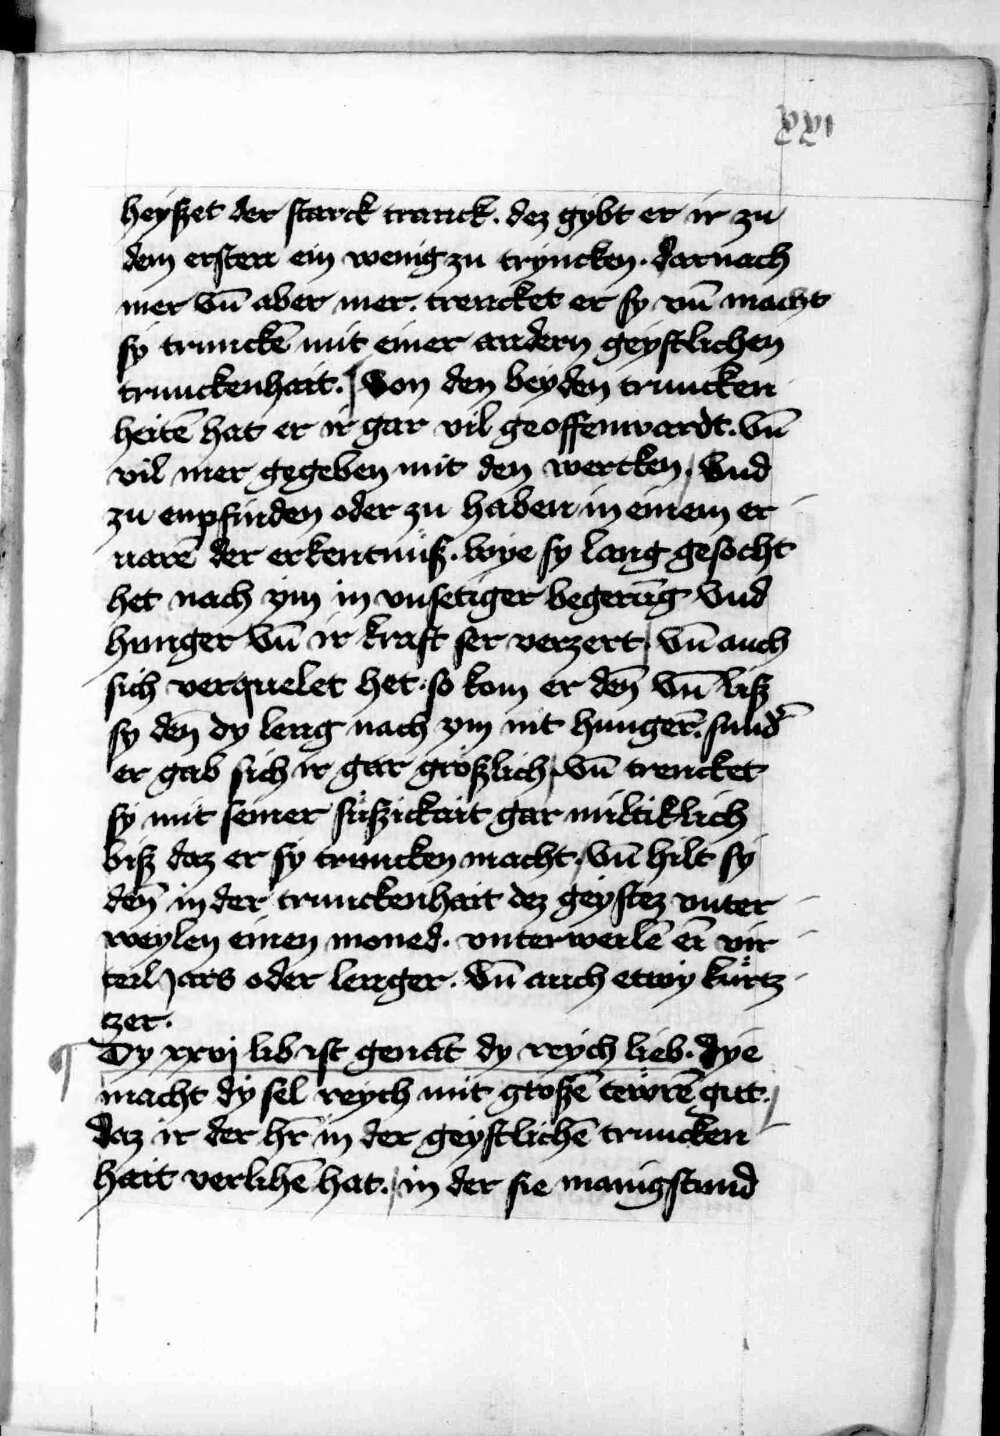 xxi
heyßet der starck tranck. dez gybt er ir zu
dem ersten ein wenig zu tryncken. darnach
mer vn̄ aber mer. trencket er sy vn̄ macht
sy trunckē mit einer andern geystlichen
trunckenhait. Von den beyden truncken
heitē hat er ir gar vil geoffenwardt. vn̄
vil mer gegeben mit den wercken. Vnd
zu enpfinden oder zu haben in einem er
narē der erkentnüß. wye sy lang gesocht
het nach ym in vnsetiger begerūg vnd
hunger vn̄ ir kraft ser verzert. vn̄ auch
sich verquelet het. so kom er den̄ vn̄ liß
sy den̄ dy leng nach ym nit hungerē. sund̄
er gab sich ir gar größlich. vn̄ trencket
sy mit seiner süßickait gar miltiklich
biß daz er sy truncken macht. vn̄ hilt sy
den̄ in der trunckenhait dez geystez vnter
weylen einen moned. vnterweilē ei᷑ vir
teil jars oder lenger. Vn̄ auch etwy kürtz
tzer.
¶ Dy xxvj lib ist genāt dy reych lieb. dye
macht dy sel reych mit großē tewrē gut.
daz ir der hr̄ in der geystlichē truncken
hait verlihē hat. in der sie manigstund